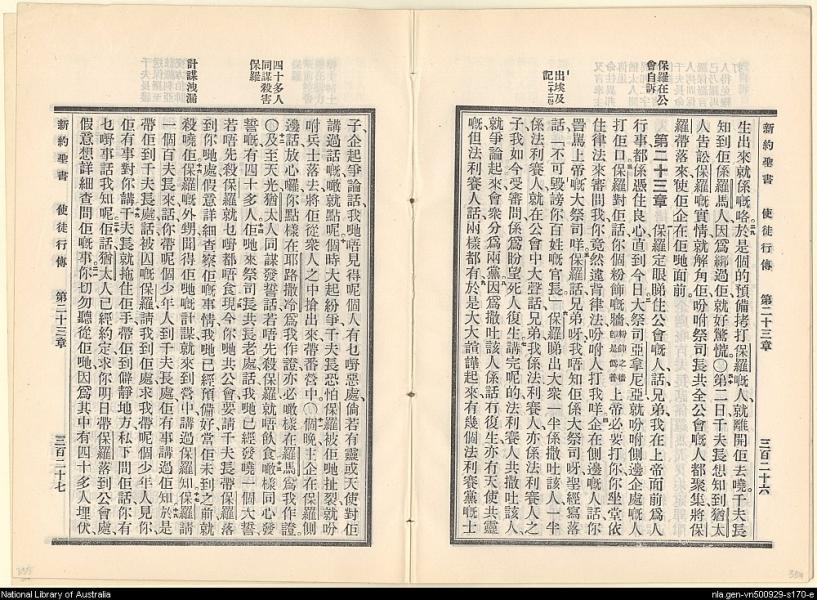 新約聖書 使徒行傳 第二十三章 三百二十六
保羅在公
會自訴
出埃及
記
生出來就係嘅咯於是個的預備拷打保羅嘅人就離開佢去嘵千夫長
知到佢係羅馬人因爲綁過佢就好驚慌〇第二日千夫長想知到猶太
人告訟保羅嘅實情就解角佢吩咐祭司長共全公會嘅人都聚集將保
羅帶落來使佢企在佢哋面前
第二十三章 保羅定眼睇住公會嘅人話兄弟我在上帝面前爲人
行事都係憑住良心直到今日大祭司亞拿尼亞就吩咐側邊企處嘅人
打佢口保羅對佢話你個粉飾嘅牆粉飾之牆卽是僞善上帝必要打你你坐堂依
住律法來審問我你竟然違背律法吩咐人打我咩企在側邊嘅人話你
詈罵上帝嘅大祭司咩保羅話兄弟呀我唔知佢係大祭司呀聖經寫落
話「不可毁謗你百姓嘅官長」保羅睇出大衆一半係撒吐該人一半
係法利賽人就在公會中大聲話兄弟我係法利賽人亦係法利賽人之
子我如今受審問係爲盼望死人復生講完呢的法利賽人共撒吐該人
就爭論起來會衆分爲兩黨因爲撒吐該人係話冇復生亦冇天使共靈
嘅但法利賽人話兩樣都有於是大大諠譁起來有幾個法利賽黨嘅士
四十多人
同謀殺害
保羅
計謀洩漏
子企起爭論話我哋唔見得呢個人有乜嘢惡處倘若有靈或天使對佢
講過話嘅噉就點呢個時大起紛爭千夫長恐怕保羅被佢哋扯裂就吩
咐兵士落去將佢從衆人之中搶出來帶番營中〇個晚主企在保羅側
邊話放心囉你點樣在耶路撒冷爲我作證亦必噉樣在羅馬爲我作證
〇及至天光猶太人同謀發誓話若唔先殺保羅就唔飲食噉樣同心發
誓嘅有四十多人佢哋來祭司長共長老處話我哋已經發嘵一個大誓
若唔先殺保羅就乜嘢都唔食現今你哋共公會要請千夫長帶保羅落
到你哋處假意詳細查察佢嘅事情我哋已經預備好當佢未到之前就
殺嘵佢保羅嘅外甥聞得佢哋嘅計謀就來到營中講過保羅知保羅請
一個百夫長來話你帶呢個少年人到千夫長處佢有事講過佢知於是
帶佢到千夫長處話被囚嘅保羅請我到佢處求我帶呢個少年人見你
佢有事對你講千夫長就拖住佢手帶佢到僻靜地方私下問佢話你有
乜嘢事話我知呢佢話猶太人已經約定求你明日帶保羅落到公會處
假意想詳細查問佢嘅事你切勿聽從佢哋因爲其中有四十多人埋伏
新約聖書 使徒行傳 第二十三章 三百二十七
National Library of Australia
nla.gen-vn500929-s170-e